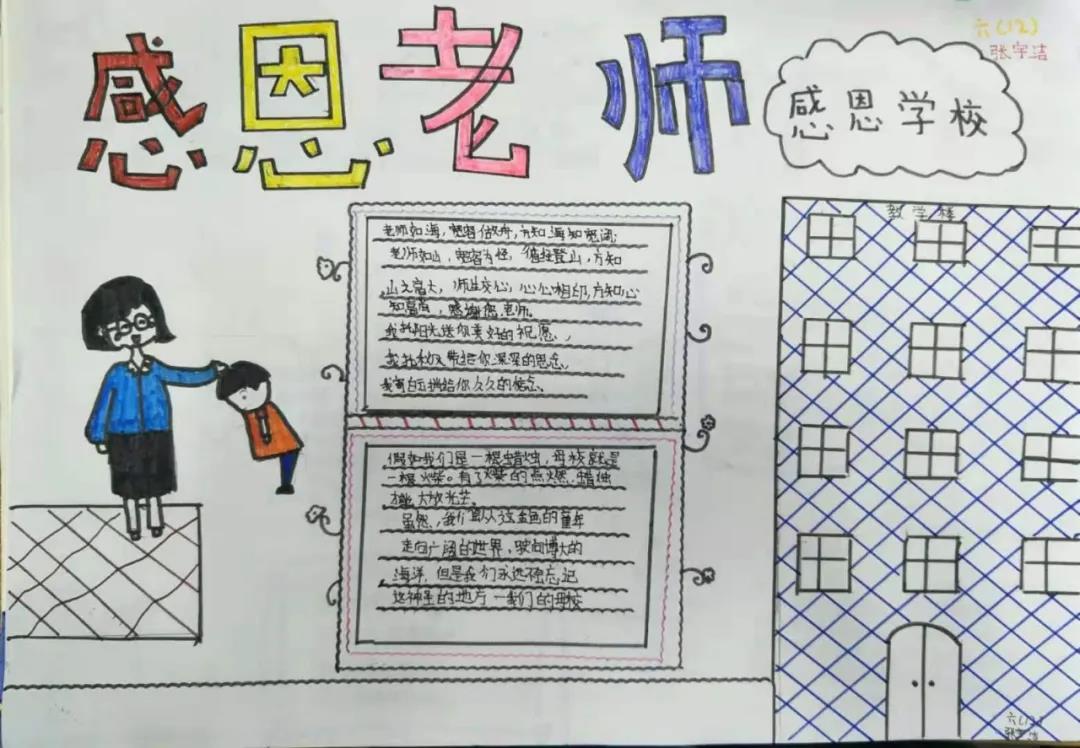 感恩老师
六(12)
张宇洁
感恩学校
教学楼
老师如海，宽容做舟，方知海知宽阔；
老师如山，宽容为径，循径登山，方知
山之高大，师生交心，心心相印，方知心
知高尚，感谢您，老师。
我托阳光送你美好的祝愿，
我托秋天带给你深深的思念，
我寄白玉捎给你久久的惦念、
假如我们是一根蜡烛，母校就是
一根火柴。有了火柴的点燃，蜡烛
才能大放光芒。
虽然，我们即从这金色的童年
走向广阔的世界，驶向博大的
海洋，但是我们永远难忘记
这神圣的地方一我们的母校
六(12)
张宇洁